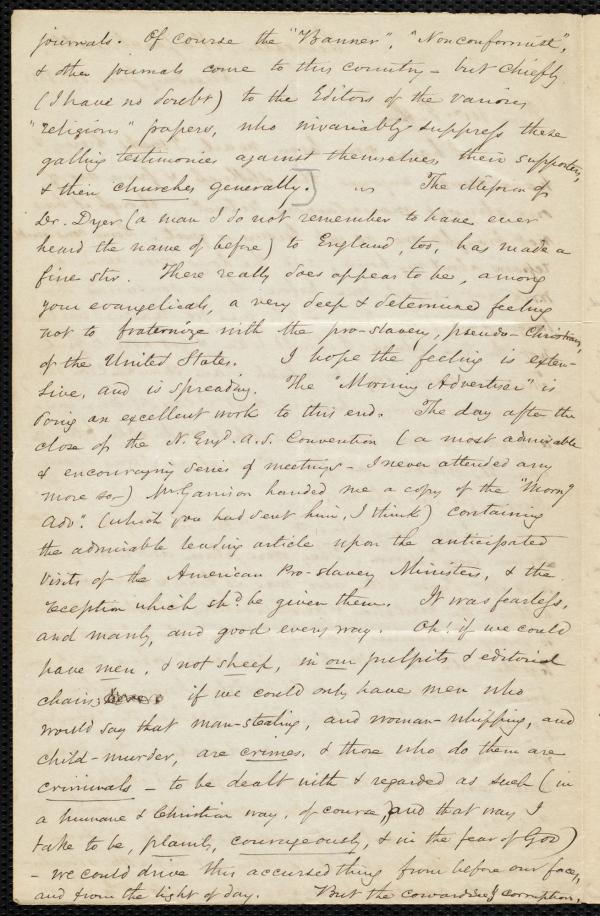 journals. Of course the "Banner", "Nonconformist",
& other journals come to this country – but chiefly
(I have no doubt) to the Editors of the various
"religious" papers, who invariably suppress these
galling testimonies against themselves, their supporters,
& their churches generally.] The Mission of
Dr. Dyer (a man I do not remember to have ever
heard the name of before) to England, too, has made a
fine stir. There really does appear to be, among
your evangelicals, a very deep & determined feeling
not to fraternize with the pro-slavery, pseudo-Christians,
of the United States. I hope the feeling is exten-
sive, and is spreading. The "Morning Advertiser" is
doing an excellent work to this end. The day after the
close of the N. Engd. A. S. Convention (a most admirable
& encouraging series of meetings – I never attended any
more so –) Mr Garrison handed me a copy of the "Morng
Adv." (which you had sent him, I think) containing
the admirable leading article upon the anticipated
visits of the American Pro-slavery Ministers, & the
reception which shd. be given them. It was fearless,
and manly, and good every way. Oh! if we could
have men, & not sheep, in our pulpits & editorial
chairs; if we could only have men who
would say that man-stealing, and woman-whipping, and
child-murder, are crimes, & those who do them are
criminals – to be dealt with & regarded as such (in
a humane & Christian way, of course, and that way I
take to be, plainly, courageously, & in the fear of God)
– we could drive this accursed thing from before our faces,
and from the light of day. But the cowardice & corruption,